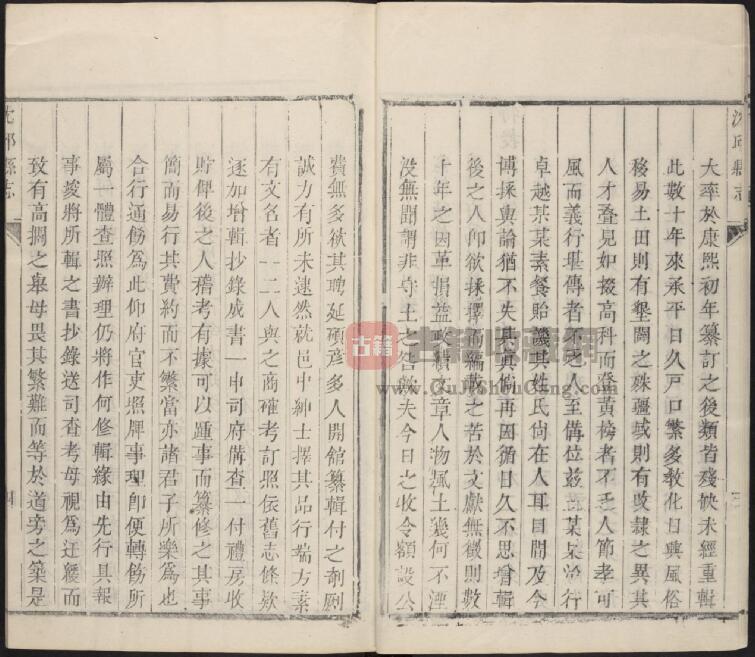 沈邱縣志
三
大率於康熙初年纂訂之後類皆殘缺未經重輯
此數十年來承平日久戸口繁多教化日興風俗
移易土田則有墾闢之殊疆域則有改隸之異其
人才疊見如掇高科而登黃榜者不乏人節孝可
風而義行堪傳者不乏人至備位茲土某某治行
卓越某某素餐貽譏其姓氏尙在人耳目間及今
博採輿論猶不失其真倘再因循日久不思增輯
後之人卽欲採擇而編載之苦於文獻無徵則數
十年之因革損益政績文章人物風土幾何不湮
没無聞謂非守土之咎歟夫今日之收令額設公
費無多欲其聘延碩彥多人開館纂輯付之剞劂
誠力有所未逮然就邑中紳士擇其品行端方素
有文名者一二人與之商確考訂照依舊志條欵
逐加增輯抄錄成書一申司府備查一付禮房收
貯俾後之人稽考有據可以踵事而纂修之其事
簡而易行其費約而不繁當亦諸君子所樂爲也
合行通飭爲此仰府官吏照牌事理卽便轉飭所
屬一體查照辦理仍將作何修輯緣由先行具報
事竣將所輯之書抄錄送司查考毋視爲迂緩而
致有高擱之舉毋畏其繁難而等於道旁之築是
沈邱縣志
四
古籍 古籍收藏網
www.GuJiShouCang.com